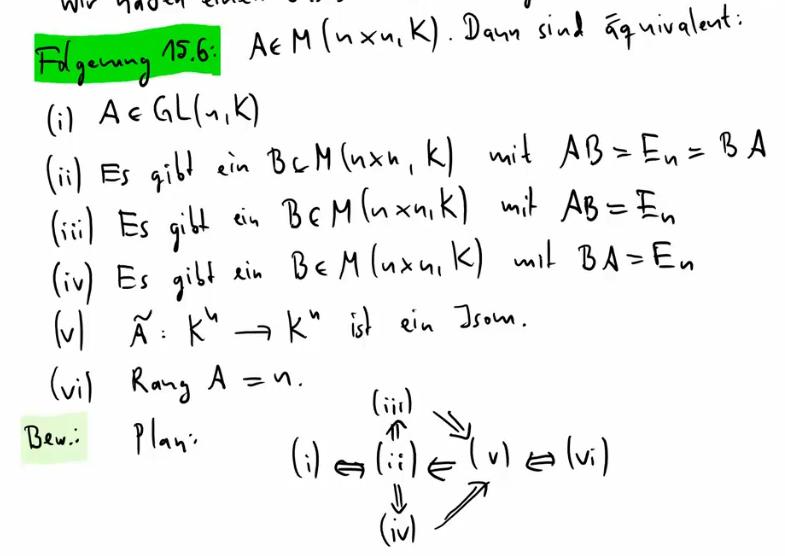 Wir haben einen
Folgerung 15.6: A ∈ M(n×n, K). Dann sind äquivalent:
(i) A ∈ GL(n, K)
(ii) Es gibt ein B ∈ M(n×n, K) mit AB = Eₙ = BA
(iii) Es gibt ein B ∈ M(n×n, K) mit AB = Eₙ
(iv) Es gibt ein B ∈ M(n×n, K) mit BA = Eₙ
(v) Ã : Kⁿ → Kⁿ ist ein Isom.
(vi) Rang A = n.
(iii)
Bew.: Plan:
(i) ⇔ (ii) ⇐ (v) ⇔ (vi)
(iv)